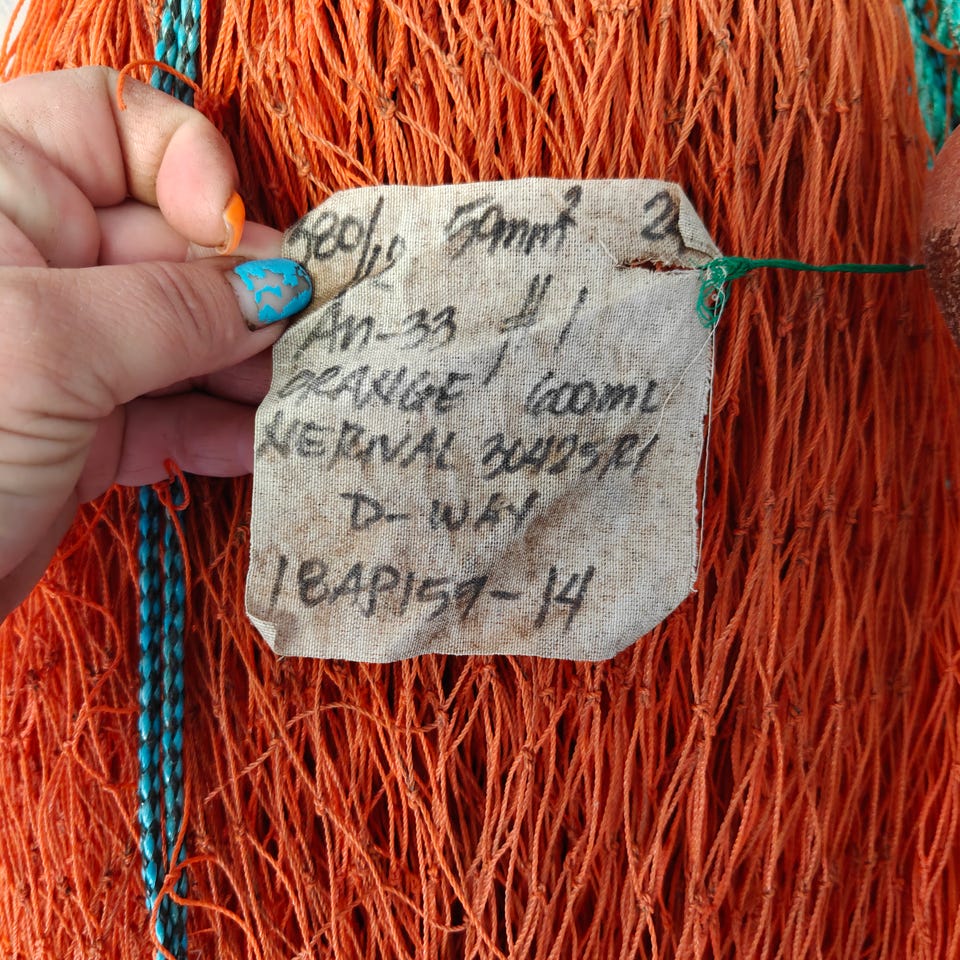 380/12 59mm²
AM-33 #1
ORANGE 600ML
NERNAL 30425/R1
D-WAY
18AP157-14